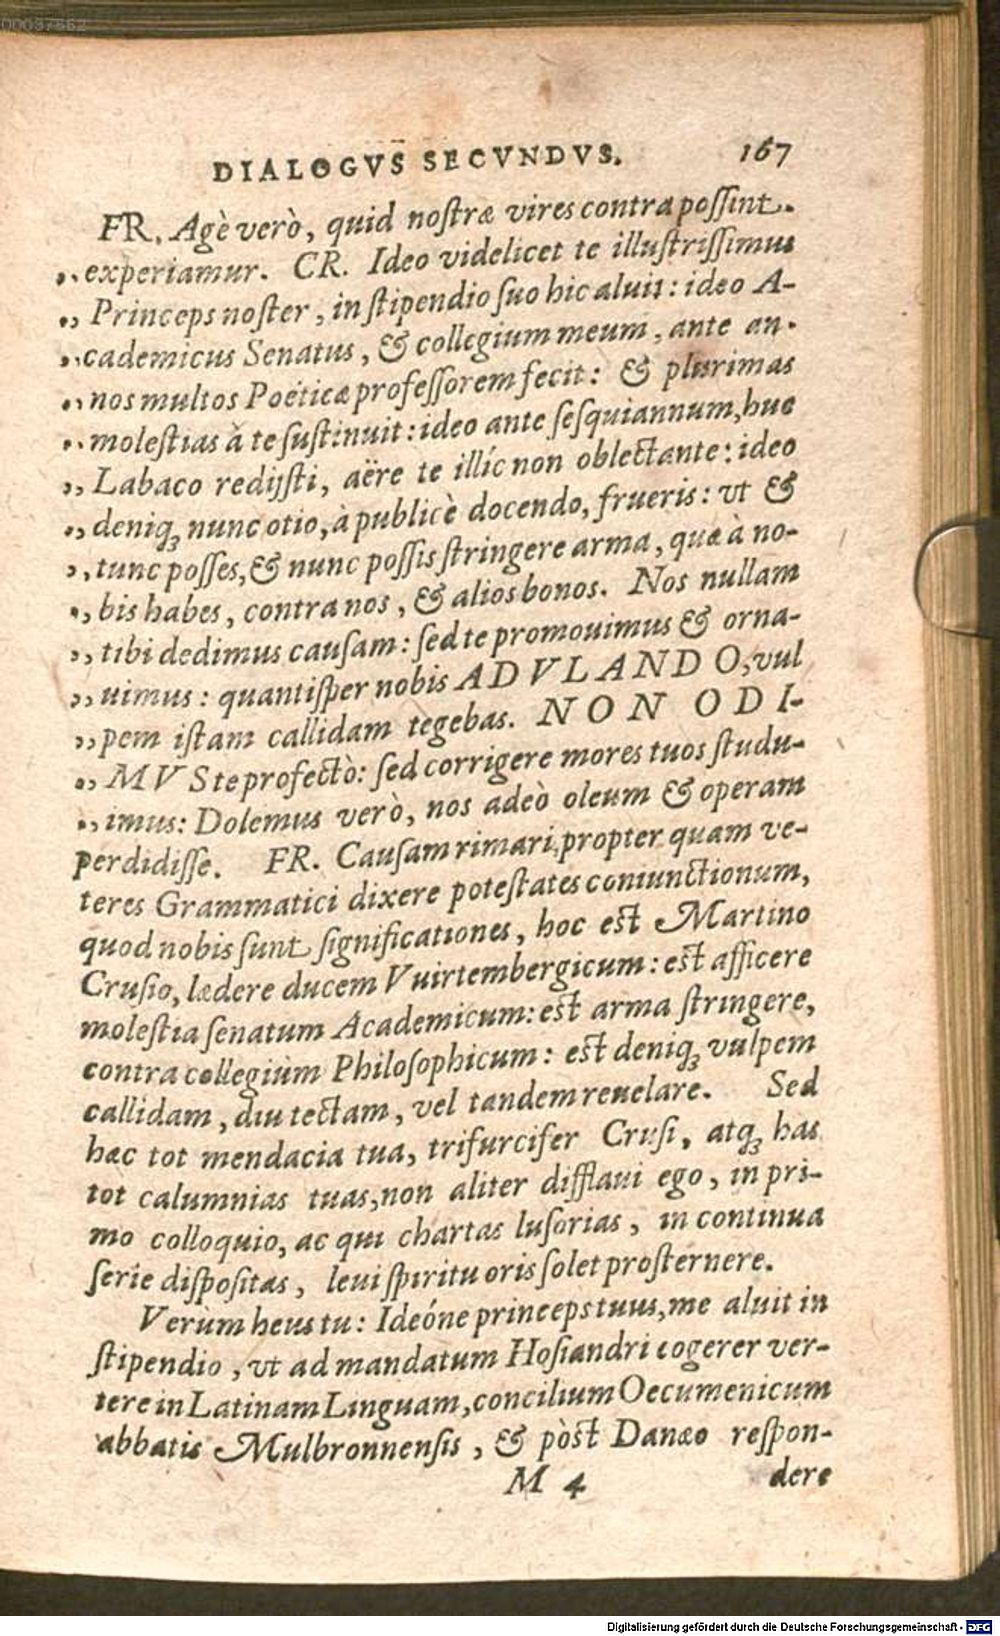 00037662
DIALOGVS SECVNDVS. 167
FR. Agè verò, quid nostræ vires contra possint.
,, experiamur. CR. Ideo videlicet te illustrissimus
,, Princeps noster, in stipendio suo hic aluit: ideo A-
,, cademicus Senatus, & collegium meum, ante an-
,, nos multos Poëticæ professorem fecit: & plurimas
,, molestias à te sustinuit: ideo ante sesquiannum, huc
,, Labaco redijsti, aëre te illíc non oblectante: ideo
,, deniq; nunc otio, à publicè docendo, frueris: vt &
,, tunc posses, & nunc possis stringere arma, quæ à no-
,, bis habes, contra nos, & alios bonos. Nos nullam
,, tibi dedimus causam: sed te promouimus & orna-
,, uimus: quantisper nobis ADVLANDO, vul
,, pem istam callidam tegebas. NON ODI-
,, MVS te profectò: sed corrigere mores tuos studu-
,, imus: Dolemus verò, nos adeò oleum & operam
perdidisse. FR. Causam rimari, propter quam ve-
teres Grammatici dixere potestates coniunctionum,
quod nobis sunt significationes, hoc est Martino
Crusio, lædere ducem Vuirtembergicum: est afficere
molestia senatum Academicum: est arma stringere,
contra collegium Philosophicum: est deniq; vulpem
callidam, diu tectam, vel tandem reuelare. Sed
hæc tot mendacia tua, trifurcifer Crusi, atq; has
tot calumnias tuas, non aliter difflaui ego, in pri-
mo colloquio, ac qui chartas lusorias, in continua
serie dispositas, leui spiritu oris solet prosternere.
Verùm heus tu: Ideóne princeps tuus, me aluit in
stipendio, vt ad mandatum Hosiandri cogerer ver-
tere in Latinam Linguam, concilium Oecumenicum
abbatis Mulbronnensis, & pòst Danæo respon-
M 4 dere
Digitalisierung gefördert durch die Deutsche Forschungsgemeinschaft - DFG